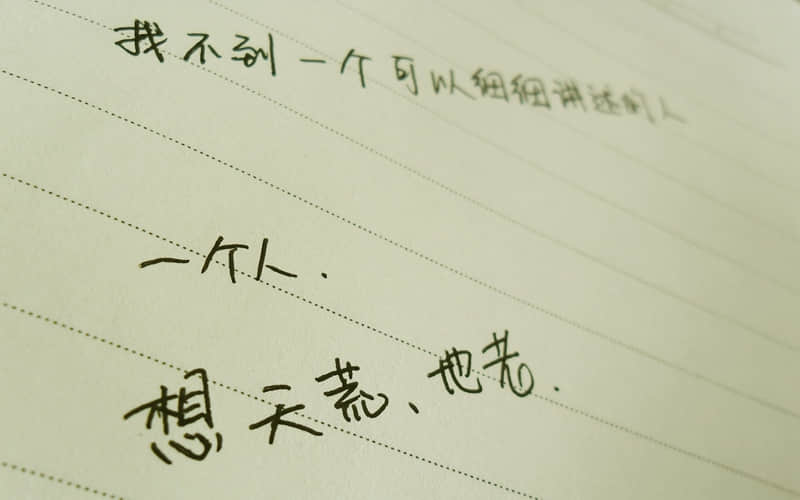 找不到一个可以细细讲述的人
一个人.
想天荒、也老.